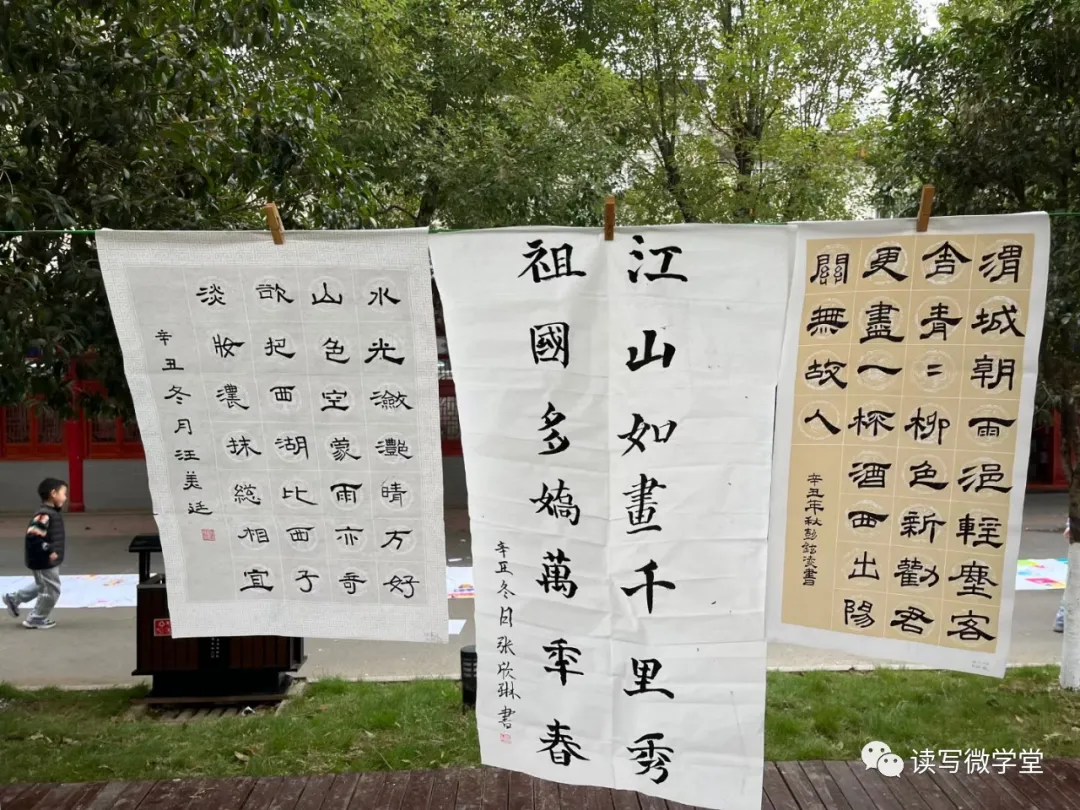 水光瀲灩晴方好
山色空蒙雨亦奇
欲把西湖比西子
淡妝濃抹総相宜
辛丑冬月汪美廷
江山如畫千里秀
祖國多嬌萬年春
辛丑冬月张欣琳書
渭城朝雨浥輕塵客
舍青〻柳色新勸君
更盡一杯酒西出陽
關無故人
辛丑年秋彭書
读写微学堂